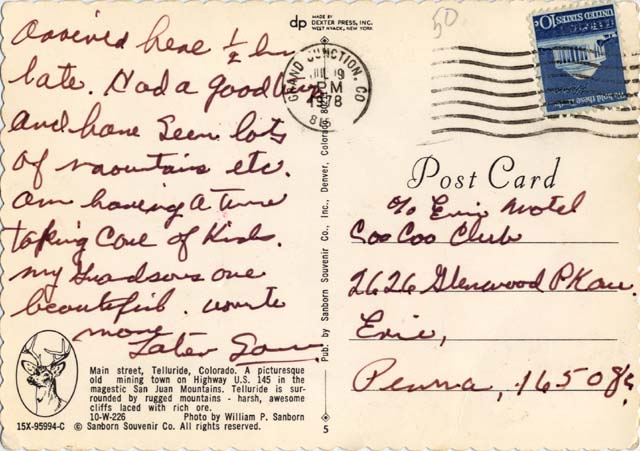 dp MADE BY
DEXTER PRESS, INC.
WEST NYACK, NEW YORK
50
Arrived here 1/2 hr
late. Had a good trip
and have seen lots
of mountains etc.
am having a time
taking care of kids.
my Grandsons are
beautiful. write
more
Later
GRAND JUNCTION, CO
JUL 19
PM
1978
UNITED STATES 10c
Post Card
c/o Erie Motel
Coo Coo Club
2626 Glenwood PKave
Erie,
Penna, 16508
Pub. by Sanborn Souvenir Co., Inc., Denver, Colorado
Main street, Telluride, Colorado. A picturesque
old mining town on Highway U.S. 145 in the
magestic San Juan Mountains. Telluride is sur-
rounded by rugged mountains - harsh, awesome
cliffs laced with rich ore.
10-W-226 Photo by William P. Sanborn
15X-95994-C © Sanborn Souvenir Co. All rights reserved.
5